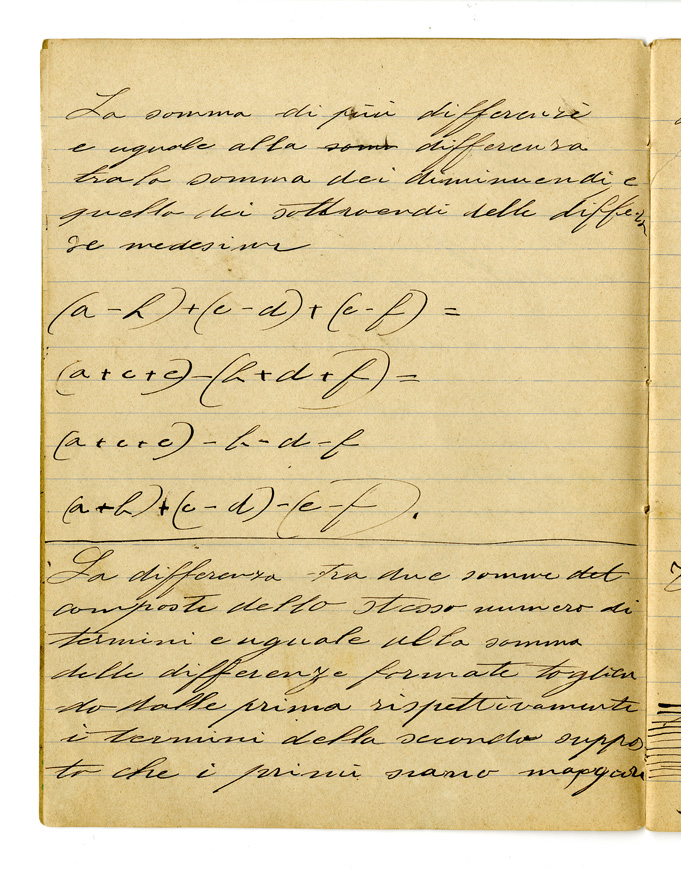 La somma di più differenze
e uguale alla som differenza
tra la somma dei diminuendi e
quella dei sottraendi delle differen
ze medesime
(a - b) + (c - d) + (e - f) =
(a + c + e) - (b + d + f) =
(a + c + e) - b - d - f
(a + b) + (c - d) - (e - f).
La differenza tra due somme det
composte dello stesso numero di
termini e uguale alla somma
delle differenze formate toglien
do dalle prima rispettivamente
i termini della seconda suppo
to che i primi siano maggiori